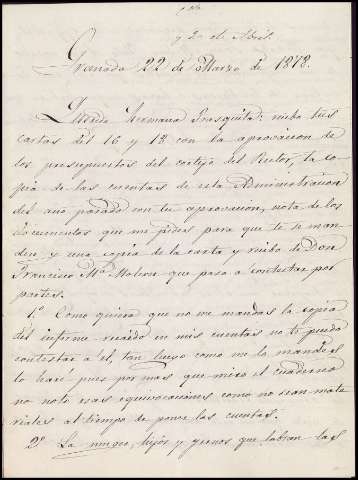 y 2 de Abril.
Granada 22 de Marzo de 1878.
Querida Hermana Frasquita: recibo tus
cartas del 16 y 18 con la aprovacion de
los presupuestos del cortijo del , la co-
pia de las cuentas de esta Administracion
del año pasado con tu aprovacion, nota de los
documentos que me pides para que te se man-
den, y una copia de la carta y recibo de Don
Francisco Mª Molina que paso a contestar por
partes.
1.º Como quiera que no me mandas la copia
del informe recaido en mis cuentas no te puedo
contestar a el, tan luego como me la mandes
lo haré pues por mas que miro el cuaderno
no noto esas equivocaciones como no sean mate
riales al tiempo de poner las cuentas.
2º La , hijos y yernos que labran las